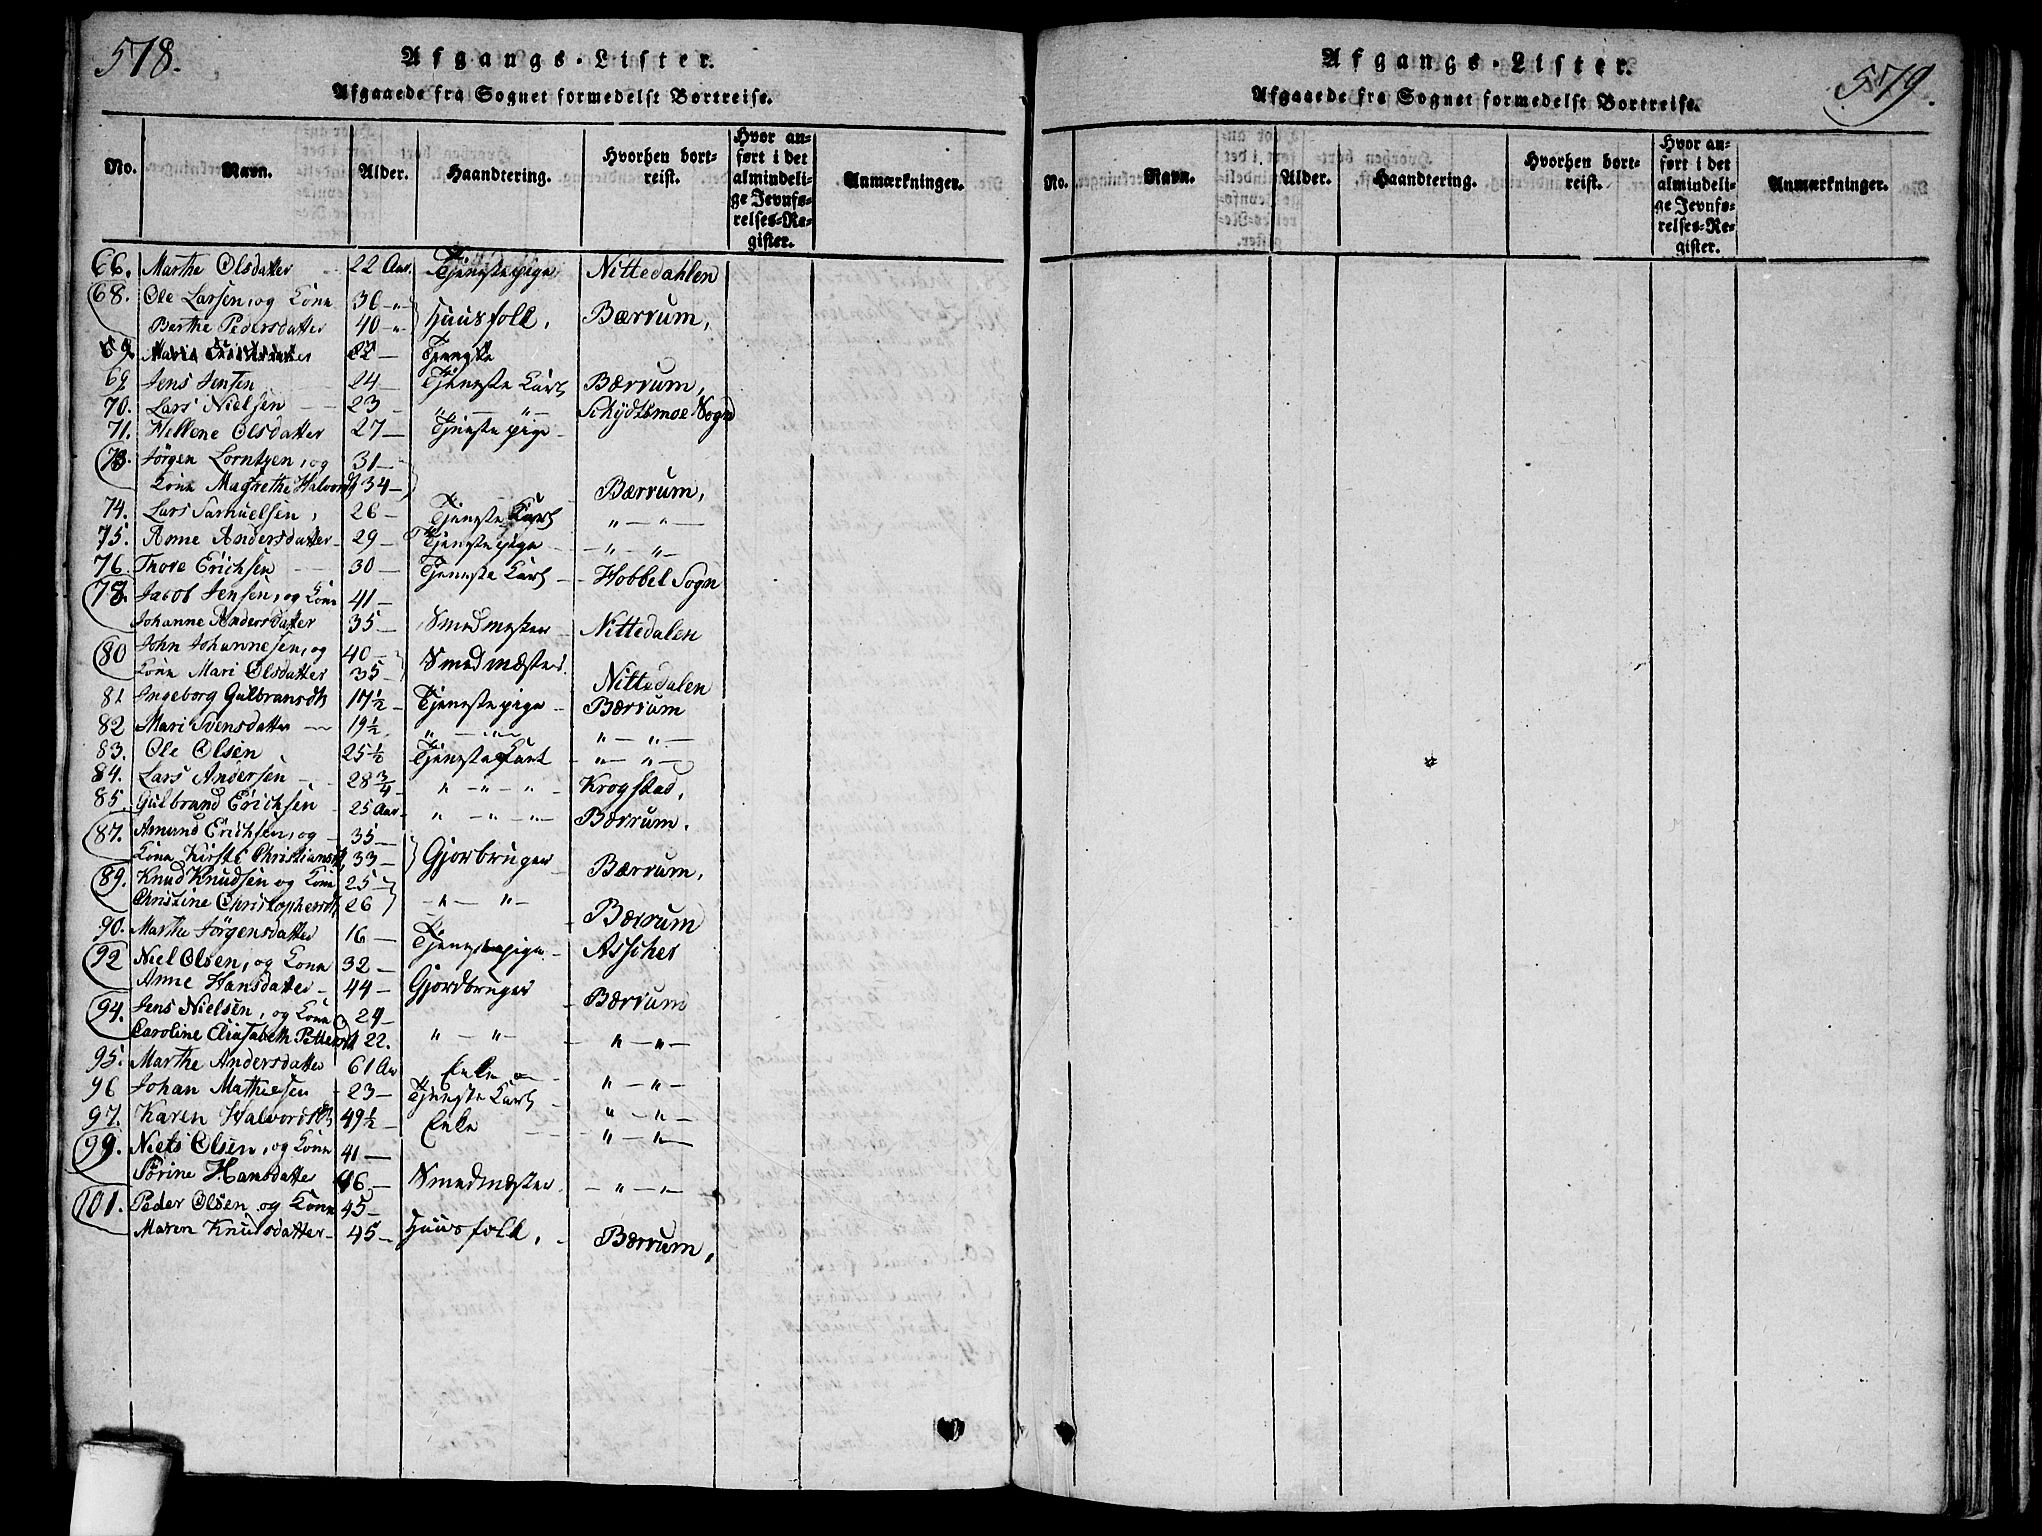 578.
Afgangs-Lister.
Afgaaede fra Sognet formedelst Bortreise.
No. Navn. Alder. Haandtering. Hvorhen bort-reist. Hvor an-ført i det almindeli-ge Jevnfø-relses-Re-gister. Anmærkninger.
66. Marthe Olsdatter 22 Aar Tjenestepige Nittedahlen
68. Ole Larsen, og Kone 36 - „
Berthe Pedersdatter 40 - „ Huusfolk, Bærrum,
69 Tjeneste
69 Jens Jensen 24 — Tjeneste Karl Bærrum,
70. Lars Nielsen — 23 — „ — „ — Schydtsmoe Sogn
71. Hellene Olsdatter 27 — Tjenestepige -
73. Jørgen Lorntzen, og 31 —
Kone Magrethe Halvord 34 — Bærrum,
74. Lars Samuelsen, 26 — Tjeneste Karl „ — „ —
75. Anne Andersdatter - 29 — Tjenestepige — „ — „ —
76. Thore Erichsen 30 — Tjeneste Karl - Hobbel Sogn
78. Jacob Jensen, og Kone 41 —
Johanne Andersdatter 35 — Smedmester Nittedalen
80 John Johannesen, og 40 —
Kone Mari Olsdatter 35 — Smedmæster. Nittedalen
81 Ingeborg Gulbransdt 17½ — Tjenestepige - Bærrum
82 Mari Svensdatter — 19½. „ — „ — „ — „ —
83. Ole Olsen 25½ Tjeneste Karl - „ — „ —
84. Lars Andersen - 28¾ „ — „ — „ Krogstad,
85. Gulbrand Erichsen - 25 Aar - „ — „ — „ — Bærrum.
87. Amund Erichsen, og - 35 —
Kone Kirsti Christiansd, 33 — Gjorbruger - Bærrum,
89. Knud Knudsen og Kone 25 —
Christine Christophersdt 26 — „ — „ — Bærrum
90. Marthe Jørgensdatter 16 — Tjenestepige - Asscher
92 Niel Olsen, og Kone 32 —
Anne Hansdatter - 44 — Gjordbruger - Bærrum
94. Jens Nielsen, og Kone 29 —
Caroline Eliasabeth Pettersd 22. „ — „ — „ — „ —
95. Marthe Andersdatter 61 Aar Enke — „ — „ —
96 Johan Mathiesen - 23 — Tjeneste Karl „ — „ —
97. Karen Halvordsdt 49½ — Enke — „ — „ —
99. Niels Olsen, og Kone 41 —
Sørine Hansdatter 46 — Smedmæster. — „ — „ —
101. Peder Olsen og Kone 45 —
Maren Knudsdatter - 45 — Huusfolk, - Bærrum,
579.
Afgangs-Lister.
Afgaaede fra Sognet formedelst Bortreise.
No. Navn. Alder. Haandtering. Hvorhen bort-reist. Hvor an-ført i det almindeli-ge Jevnfø-relses-Re-gister. Anmærkninger.